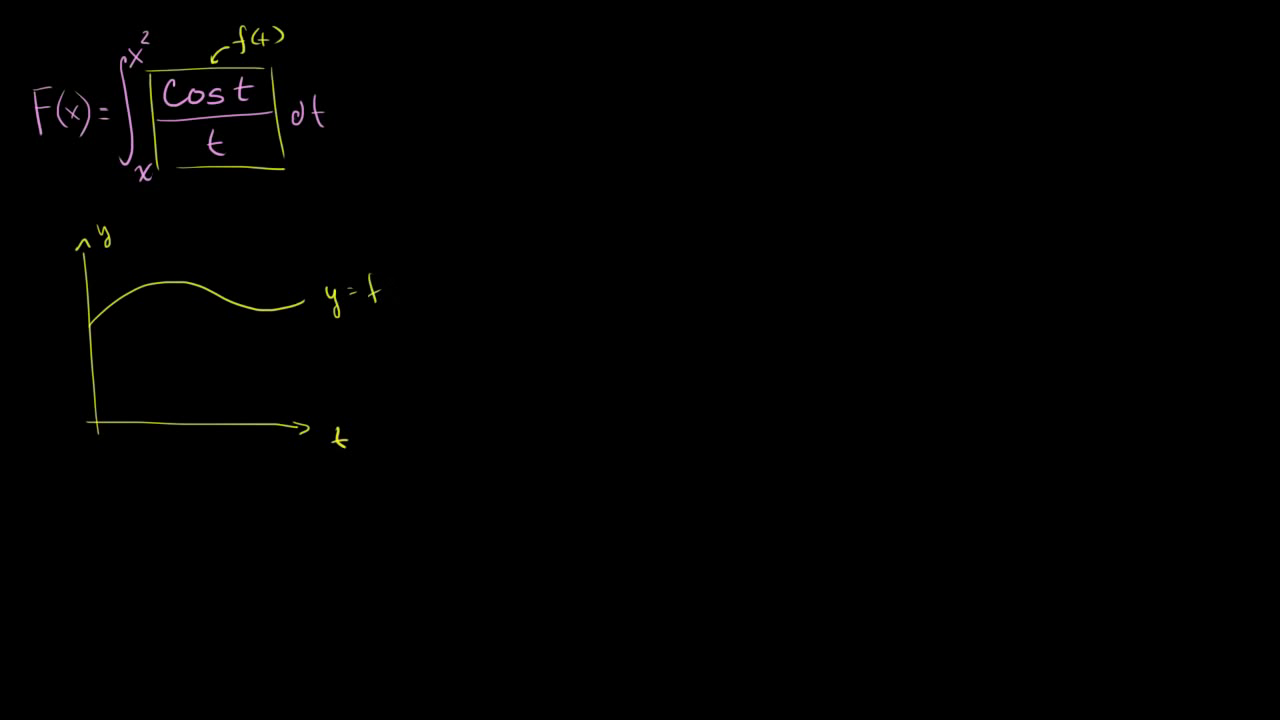 f(t)
F(x) = ∫ₓ^x² cos t / t dt
y
y = f
t